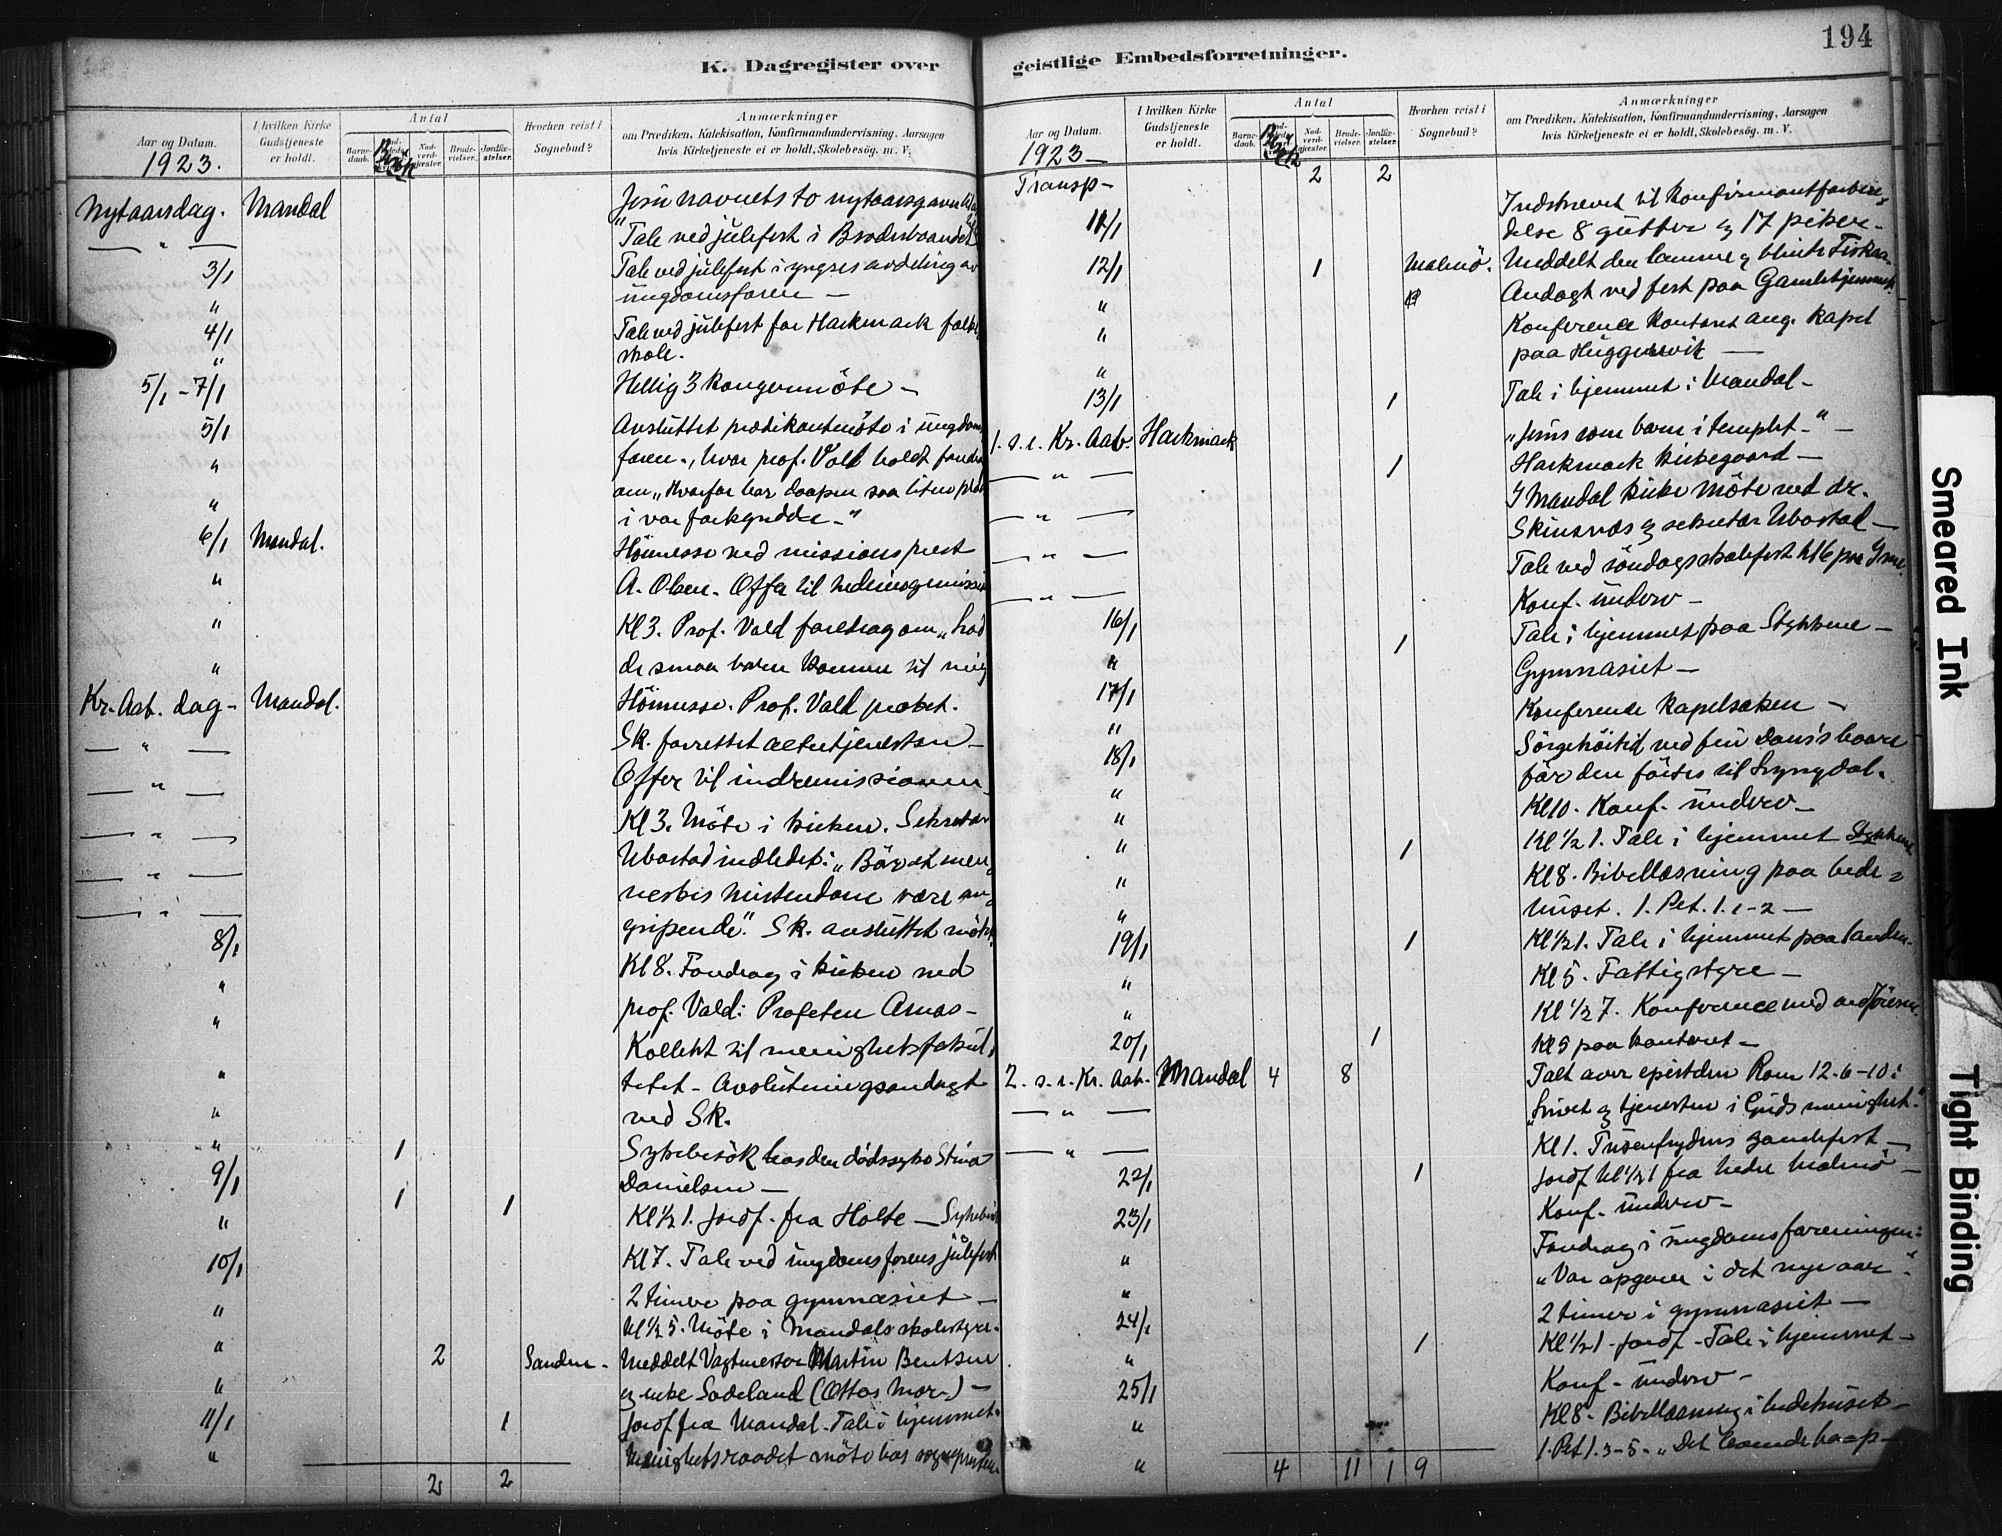 194
K. Dagregister over geistlige Embedsforretninger.
Aar og Datum. 1923.
I hvilken Kirke Gudstjeneste er holdt.
Antal
Barnedaab.
Nadverdgjester.
Brudevielser.
Jordfæstelser.
Hvorhen reist i Sognebud?
Anmærkninger
om Prædiken, Katekisation, Konfirmandundervisning, Aarsagen
hvis Kirketjeneste ei er holdt, Skolebesøg. m. V.
Nytaarsdag. Mandal Jesu navnets to nytaarsgaver
— " — Tale ved julefest i Broderbaandet
3/1 Tale ved julefest i yngres avdeling av
ungdomsforen —
" Tale ved julefest for Harkmark
4/1 skole.
"
5/1 - 7/1 Hellig 3 kongermöte —
5/1 Avsluttet prædikantmöte i ungdoms
" foren., hvor prof. Vold holdt foredrag
om „Hvorfor har daapen saa liten plads
" i vor forkyndelse -"
6/1 Mandal. Höimesse ved missionsprest
" A. Olsen. Offer til hedningemission
" Kl 3. Prof. Vold foredrag om „Lad
" de smaa barn komme til mig
Kr. Aab. dag - Mandal. Höimesse. Prof. Vold præket.
— " — Sk. forrettet altertjenesten —
— " — Offer til indremissionen —
— " — Kl 3. Möte i kirken. Sekretær
— " — Ubostad indledet: „Bör et men-
neskes kristendom være an-
— " — gripende". Sk. avsluttet mötet.
8/1 Kl 8. Foredrag i kirken ved
" prof. Vold: Profeten Amos —
" Kollekt til menighetsfakul-
" tetet — Avslutningsandagt
" ved Sk.
" 1 Sykebesök hos den dödssyke Stina
9/1 Danielsen —
" 1 1 Kl 1/2 1. Jordf. fra Holte — Sykebesök
10/1 Kl 7. Tale ved ungdomsforens julefest
2 timer paa gymnasiet —
" Kl 1/2 5. Möte i Mandals skolestyre.
" 2 Sanden — Meddelt Vagtmester Martin Bentsen
" og enke Sodeland (Ottos Mor) —
11/1 1 Jordf fra Mandal. Tale i hjemmet.
" Menighetsraadet möte hos sogneprsten
2 2
Aar og Datum. 1923 —
I hvilken Kirke Gudstjeneste er holdt.
Antal
Barnedaab.
Nadverdgjester.
Brudevielser.
Jordfæstelser.
Hvorhen reist i Sognebud?
Anmærkninger
om Prædiken, Katekisation, Konfirmandundervisning, Aarsagen
hvis Kirketjeneste ei er holdt, Skolebesøg. m. V.
Transp — 2 2
11/1 Indskrevet til konfirmantforbere-
delse 8 gutter og 17 piker —
12/1 1 Malmö. Meddelt den lamme og blinde
" Andagt ved fest paa Gamlehjemmet.
" Konference kontoret ang. kapel
paa
" Tale i hjemmet i Mandal —
13/1 1
1. s. e. Kr. Aab. Harkmark „Jesus som barn i templet —" —
— " — 1 Harkmark kirkegaard —
— " — I Mandal kirke möte ved dr.
Skinsnæs og sekretær Ubostad —
— " — Tale ved söndagsskolefest kl 6 paa
— " — Konf. underv —
16/1 1 Tale i hjemmet paa Stykkene —
" Gymnasiet —
17/1 Konference Kapelsaken —
" Sörgehöitid ved frü
18/1 för den föres til Lyngdal.
" Kl 10. Konf. underv —
" 1 Kl 1/2 1. Tale i hjemmet Stykkene
" Kl 8. Bibellæsning paa bede-
" huset. 1. Pet. 1. 1-2 —
19/1 1 Kl 1/2 1. Tale i hjemmet paa Sanden —
" Kl 5. Fattigstyre —
" Kl 1/2 7. Konference med
20/1 1 Kl 5 paa kontoret —
2. s. e. Kr. Aab. Mandal 4 8 Talt over epistelen Rom 12. 6-10:
— " — „Livet og tjenesten i Guds menighet."
— " — Kl 1. Tusenfrydens
22/1 1 Jordf kl 1/2 1 fra Nedre Malmö —
Konf. underv —
23/1 Foredrag i ungdomsforeningen:
" „Vor opgave i det nye aar".
" 2 timer i gymnasiet —
24/1 1 Kl 1/2 1. Jordf. Tale i hjemmet —
" Konf. underv —
25/1 Kl 8. Bibellæsning i bedehuset —
" 1. Pet 1. 3-5. „Det levende haap —
" 4 11 1 9
Smeared Ink
Tight Binding